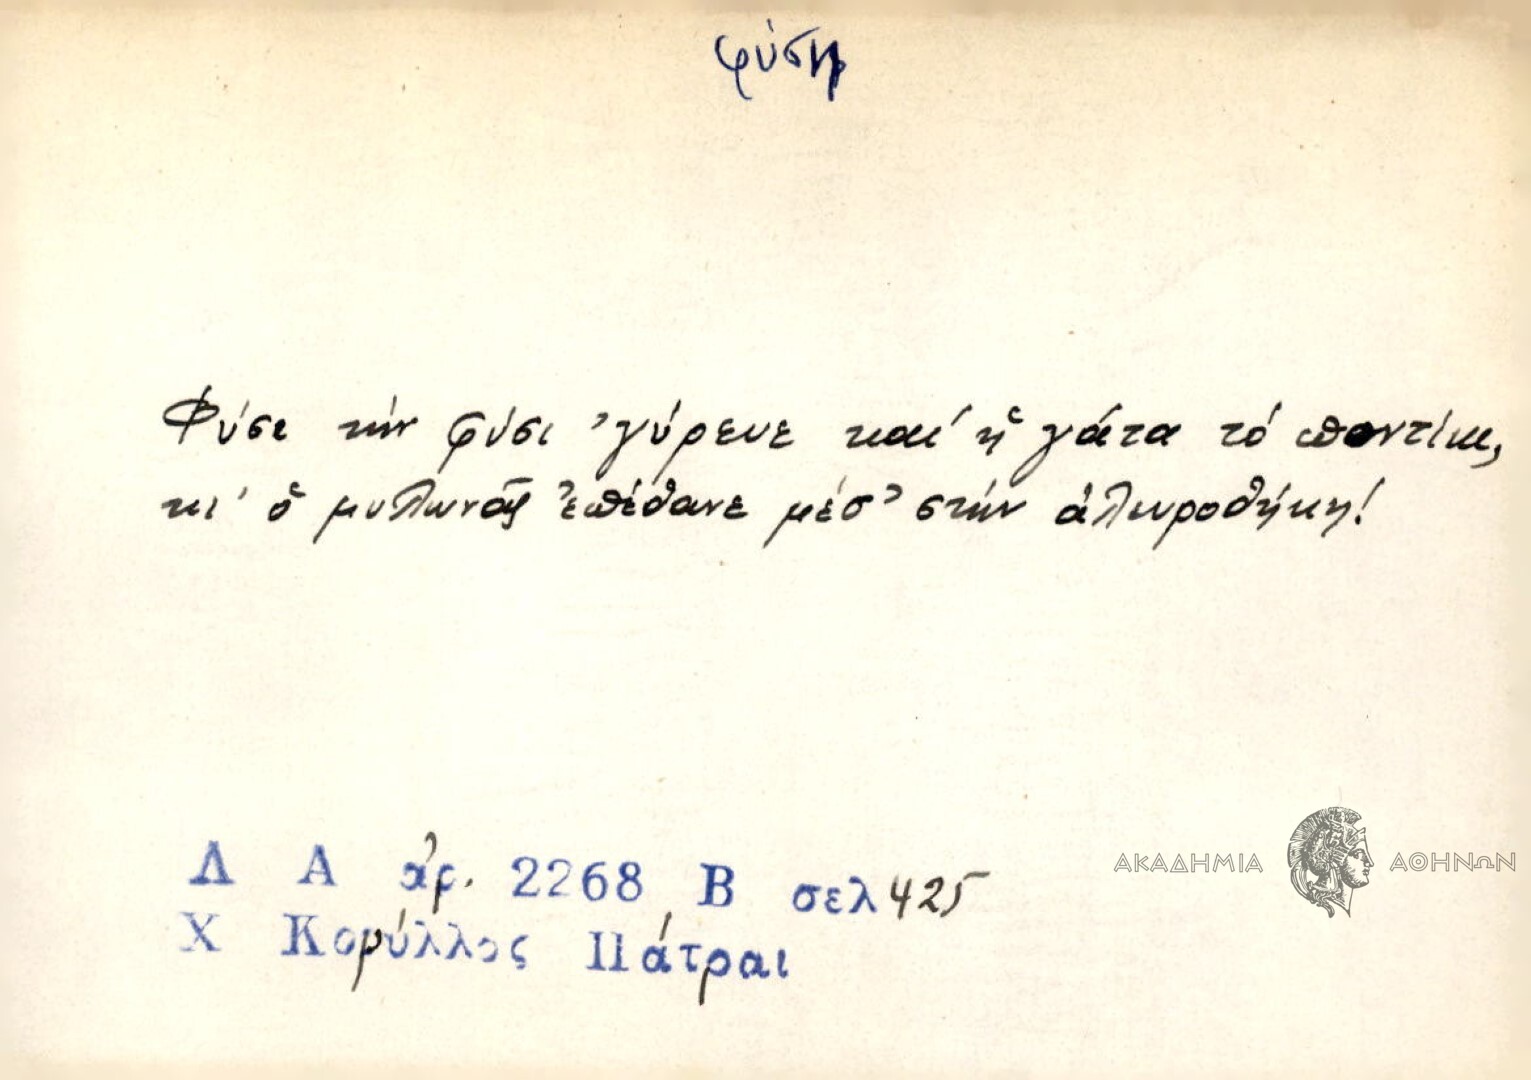 φύση
Φύσι τὴν φύσι 'γύρευε καί ἡ γάτα τό ποντίκι,
κι' ὁ μυλωνᾶς ἐπέθανε μέσ' στήν ἀλευροθήκη!
Λ Α ἀρ. 2268 Β σελ 425
Χ Κορύλλος Πάτραι
ΑΚΑΔΗΜΙΑ ΑΘΗΝΩΝ